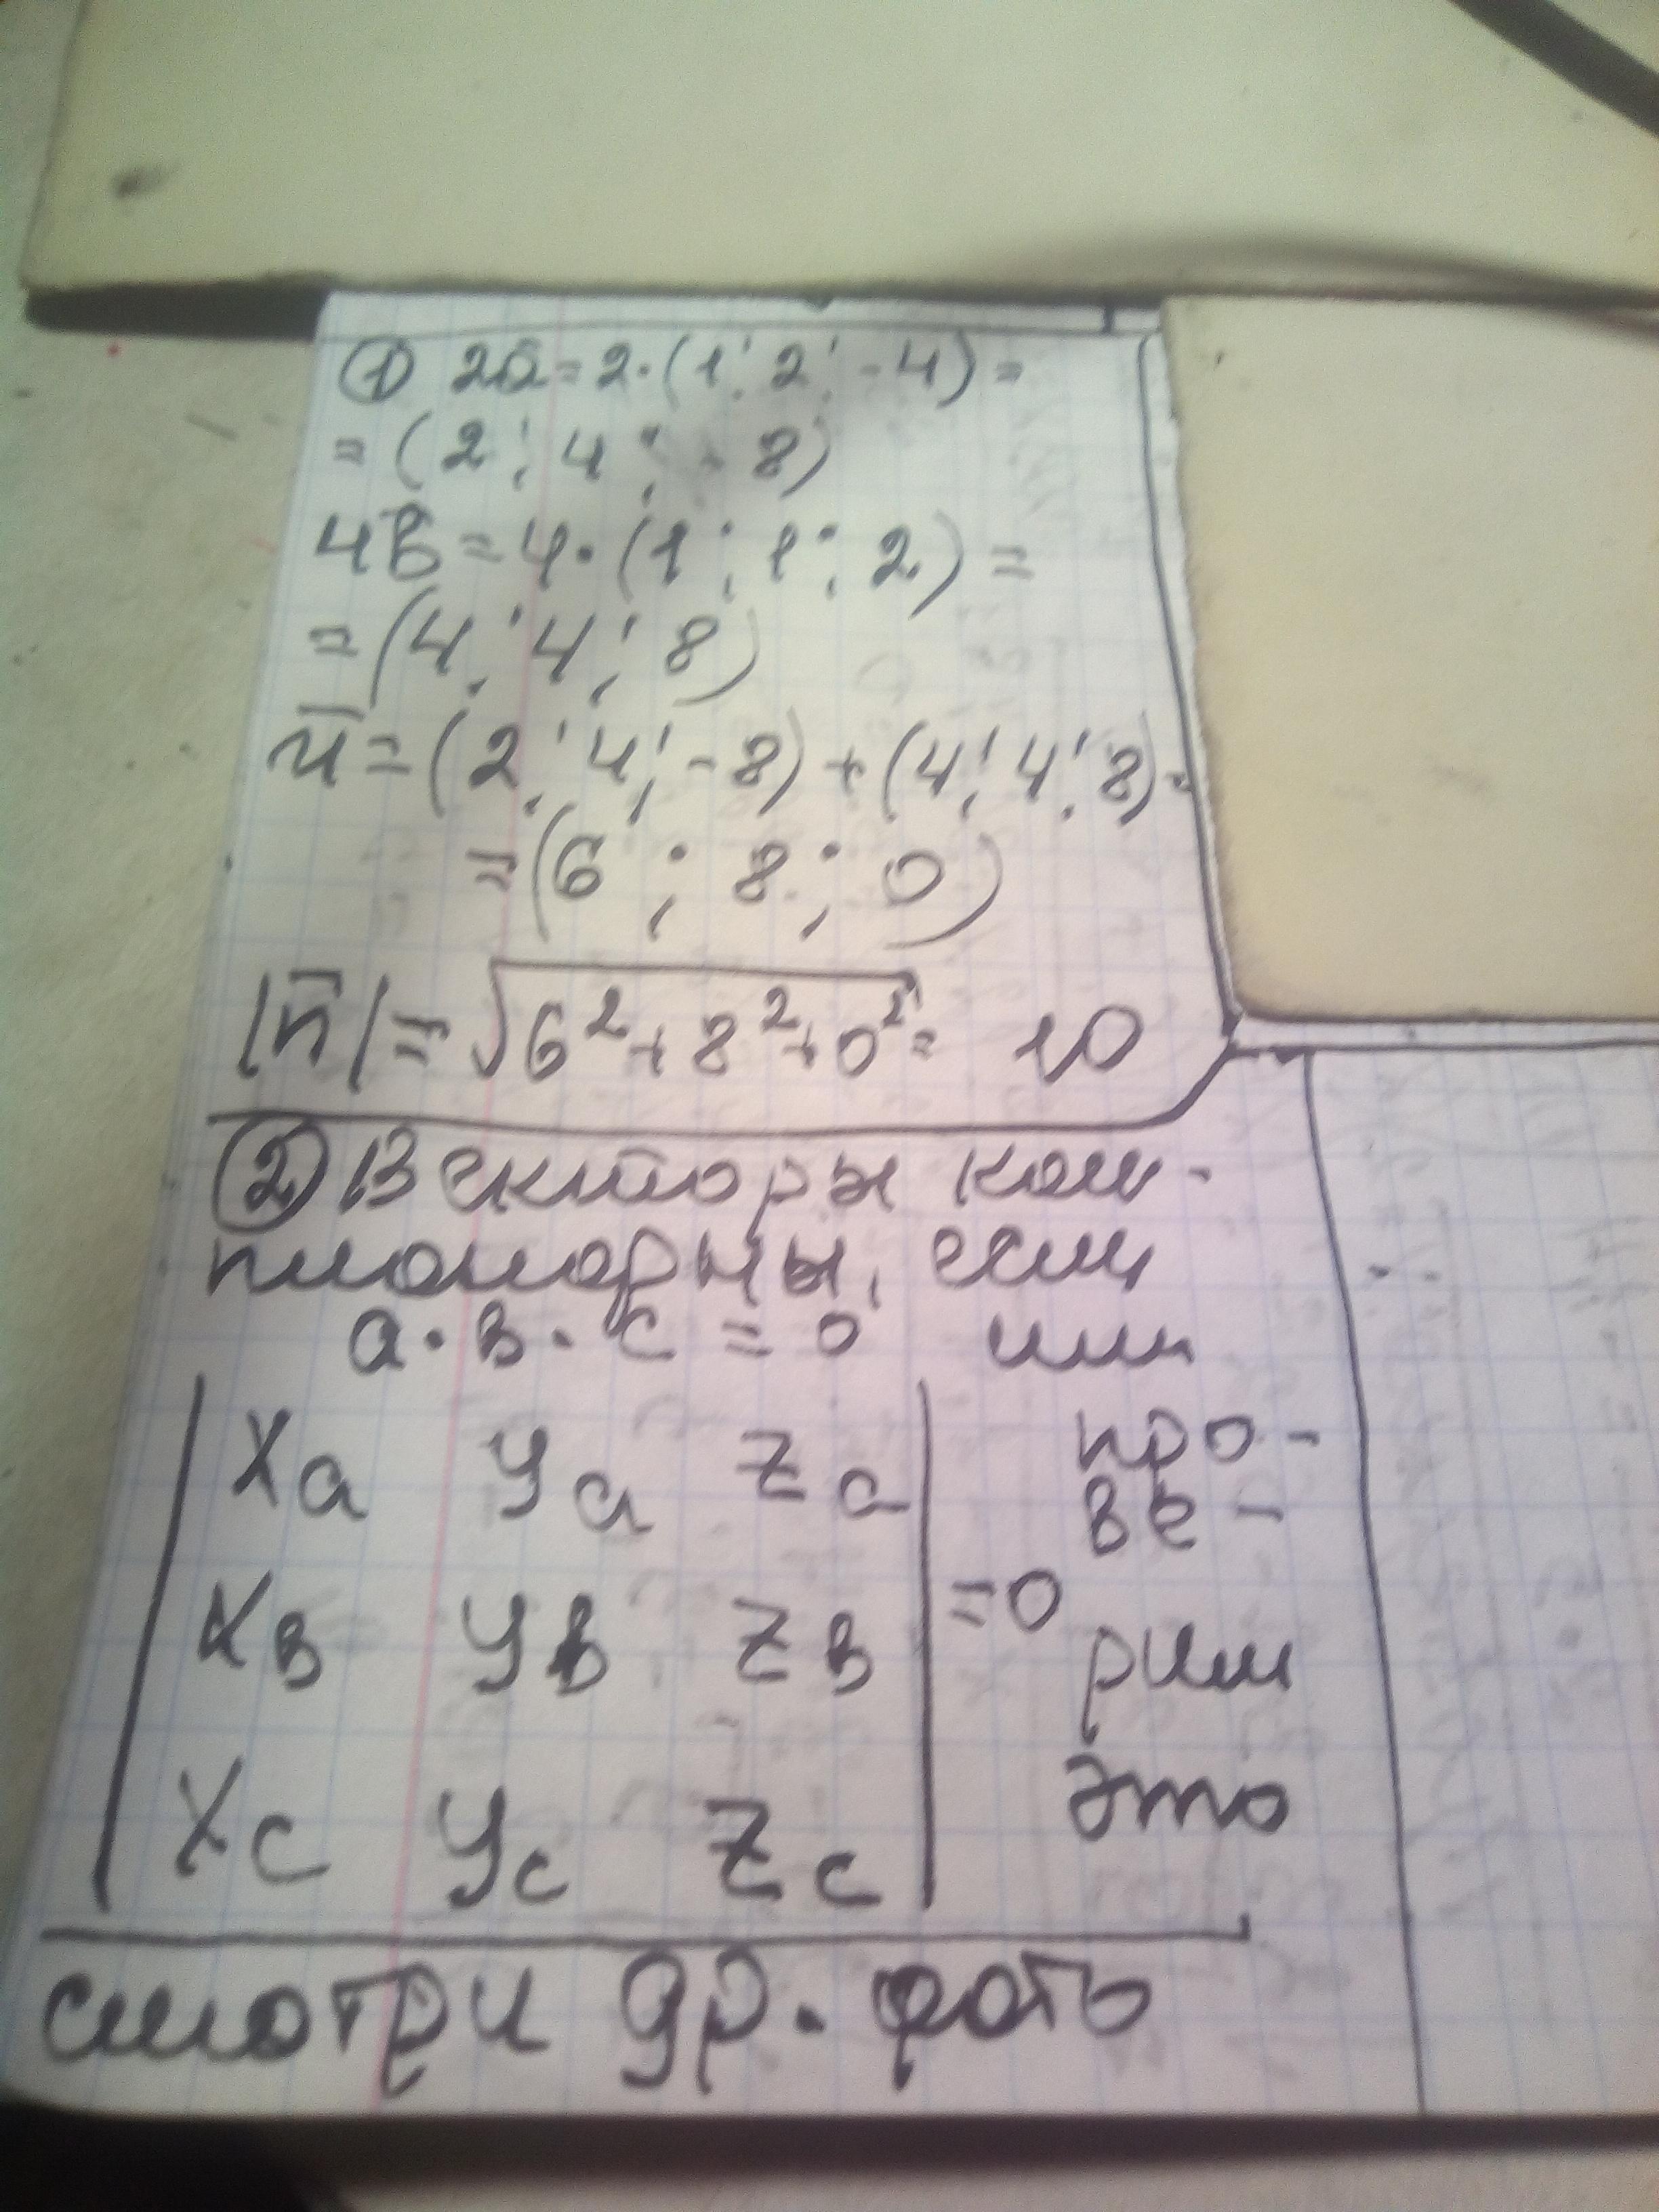 ① 2ā = 2·(1; 2; -4) =
= (2; 4; -8)
4в̄ = 4·(1; 1; 2) =
= (4; 4; 8)
n̄ = (2; 4; -8) + (4; 4; 8) =
= (6; 8; 0)
|n̄| = √6²+8²+0² = 10
② Векторы ком-
планарны, если
а · в · с = 0 или
| Xa Ya Za |
| Xв Yв Zв | = 0
| Xc Yc Zc |
про-
ве-
рим
это
смотри др. фото